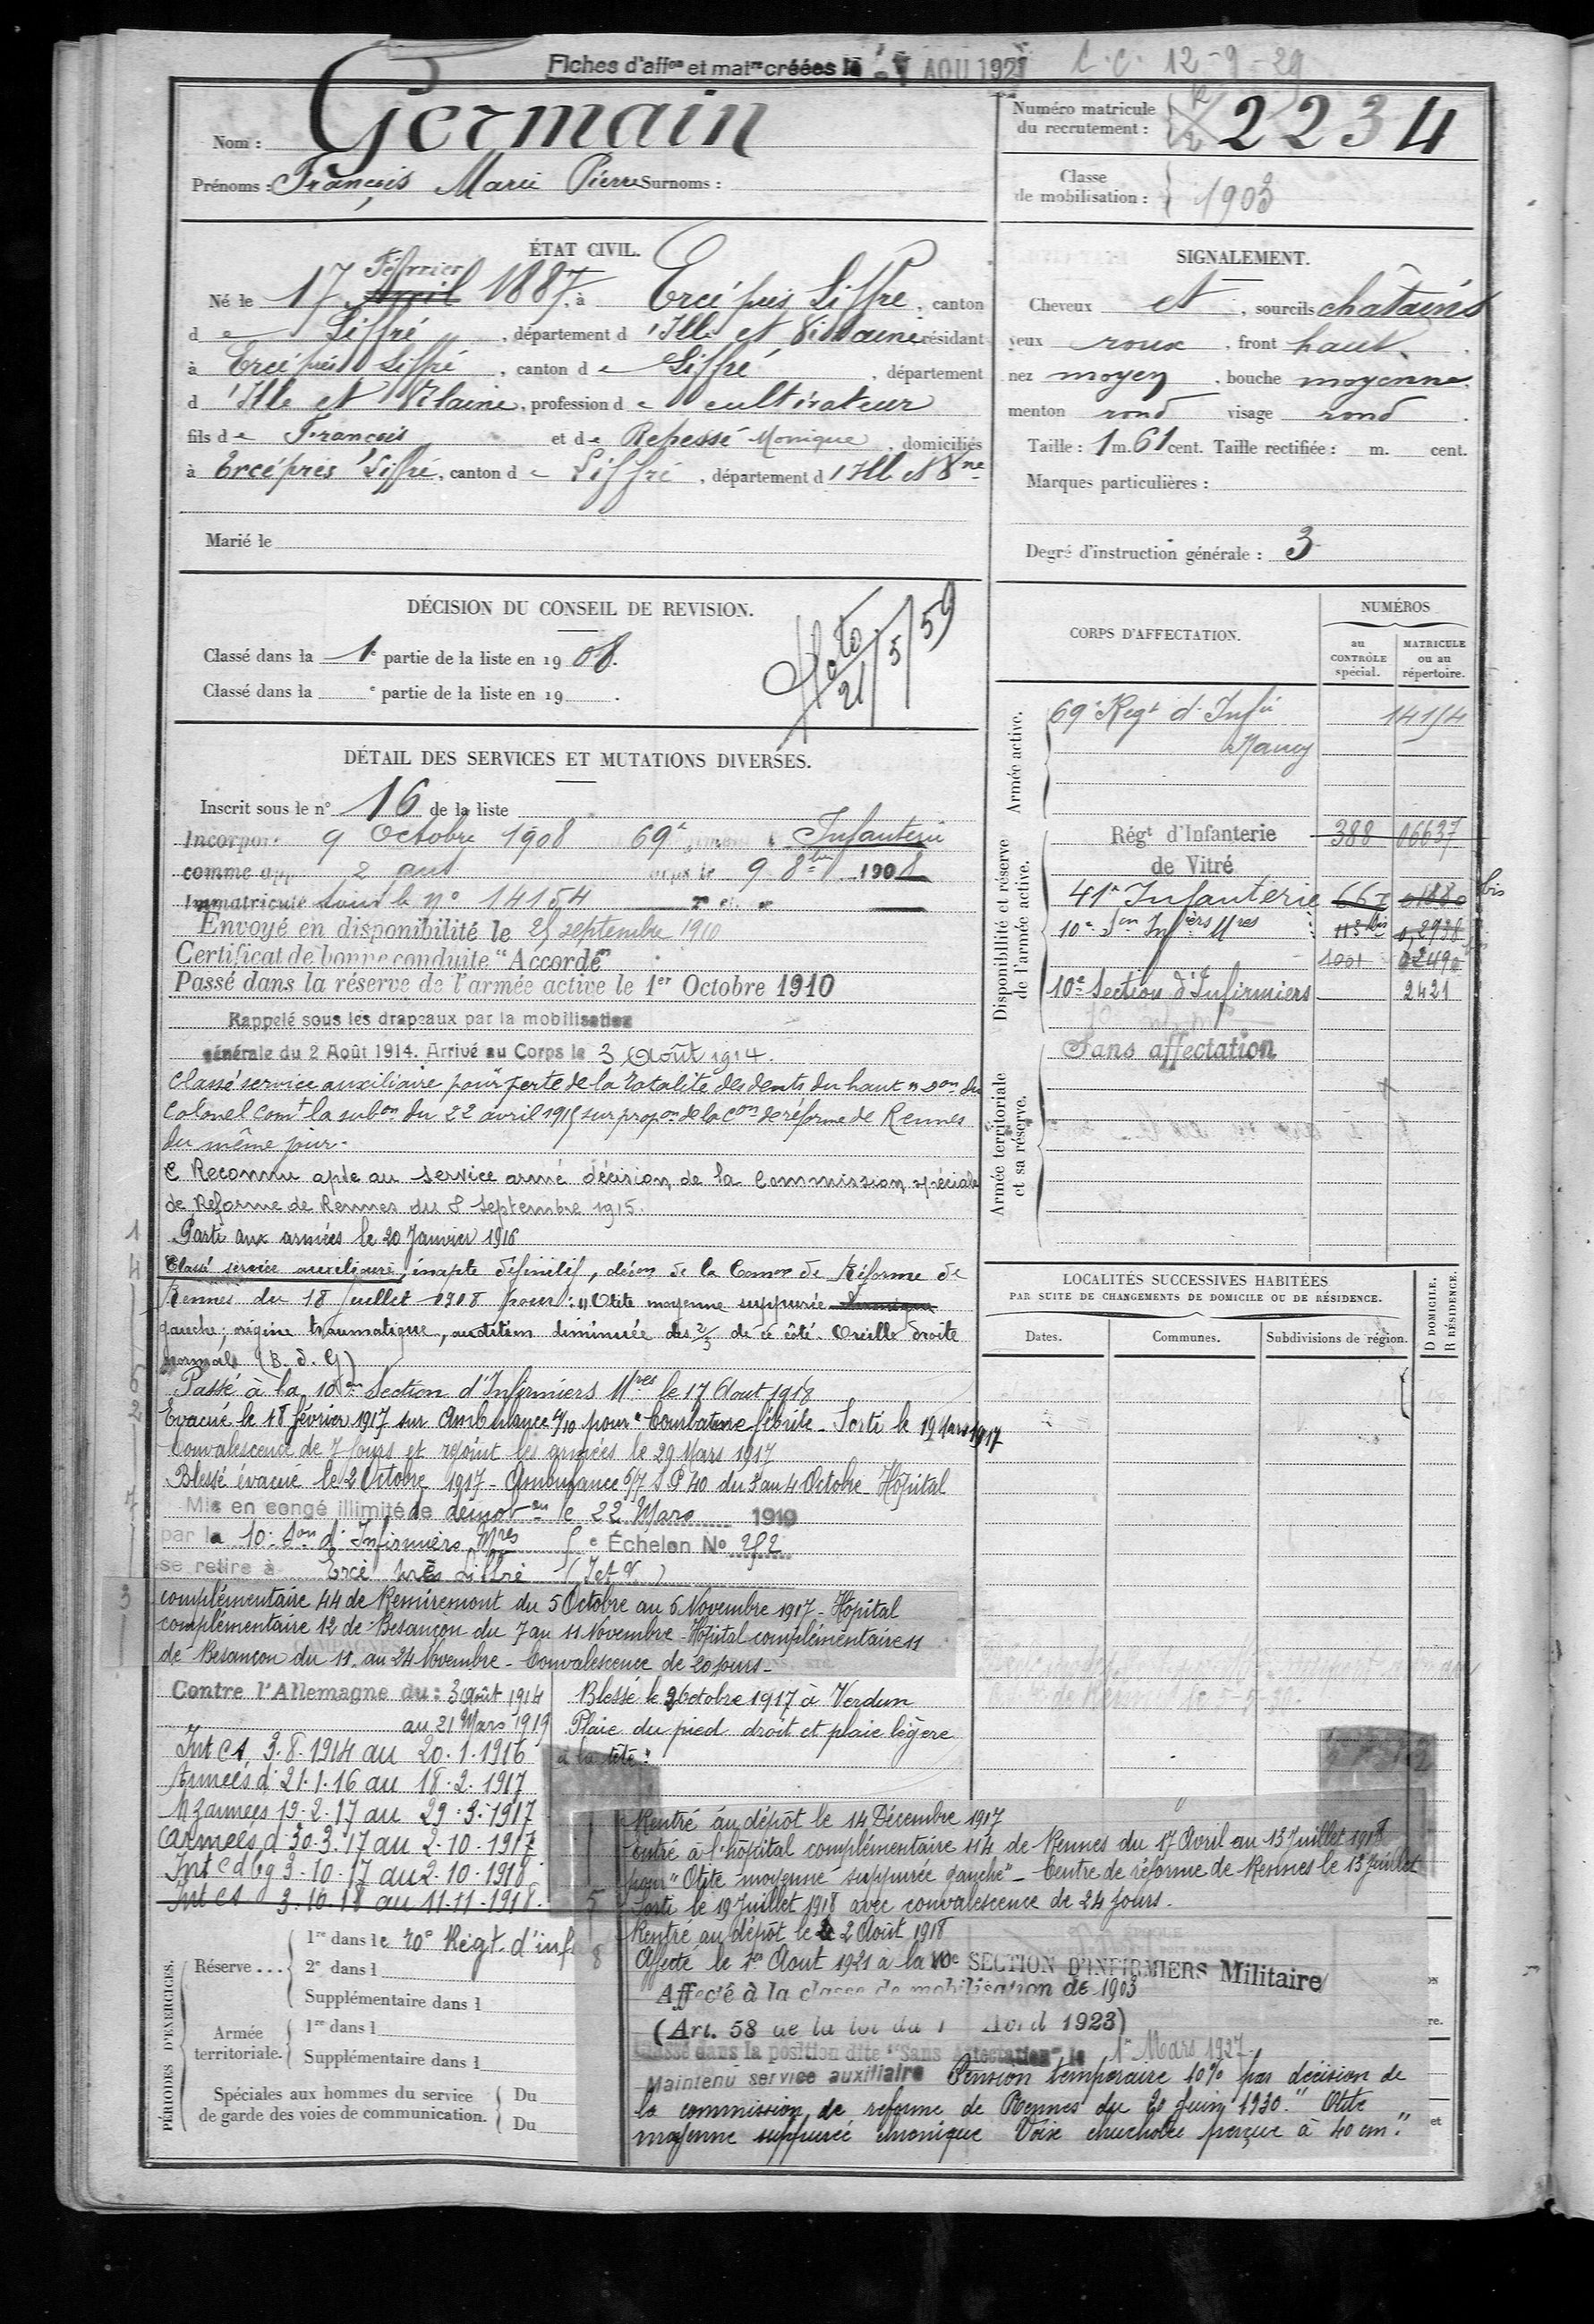 Fiches d'affon et matre créées le AOU 192
C.C. 12-9-29
Nom : Germain
Prénoms : François Marie Pierre Surnoms :
Numéro matricule du recrutement : 2234
Classe de mobilisation : 1903
ÉTAT CIVIL.
Février
Né le 17 Avril 1887, à Ercé près Liffré, canton
de Liffré, département d'Ille et Vilaine résidant
à Ercé près Liffré, canton de Liffré, département
d'Ille et Vilaine, profession de cultivateur
fils de François et de Repessé Monique, domiciliés
à Ercé près Liffré, canton de Liffré, département d'Ille et Vne
Marié le
SIGNALEMENT.
Cheveux et, sourcils châtains
yeux roux, front haut
nez moyen, bouche moyenne
menton rond visage rond
Taille : 1 m. 61 cent. Taille rectifiée : m. cent.
Marques particulières :
Degré d'instruction générale : 3
DÉCISION DU CONSEIL DE REVISION.
Classé dans la 1e partie de la liste en 1908.
Classé dans la e partie de la liste en 19 .
21/5/59
DÉTAIL DES SERVICES ET MUTATIONS DIVERSES.
Inscrit sous le n° 16 de la liste
Incorporé 9 Octobre 1908 69e Infanterie
comme app 2 ans 9 8bre 1908
Immatriculé sous le n° 14154
Envoyé en disponibilité le 25 septembre 1910
Certificat de bonne conduite "Accordé"
Passé dans la réserve de l'armée active le 1er Octobre 1910
Rappelé sous les drapeaux par la mobilisation
générale du 2 Août 1914. Arrivé au Corps le 3 Août 1914.
Classé service auxiliaire pour "perte de la totalité des dents du haut" Don du
Colonel Comt la subon du 22 avril 1915 sur propon de la Con de réforme de Rennes
du même jour.
Reconnu apte au service armé décision de la Commission spéciale
de Réforme de Rennes du 8 septembre 1915.
Parti aux armées le 20 Janvier 1916
Classé service auxiliaire, inapte définitif, décon de la Comon de Réforme de
Rennes du 18 Juillet 1918 pour : "Otite moyenne suppurée
gauche, origine traumatique, audition diminuée des 2/3 de ce côté. Oreille droite
normale (B.d.G)
Passé à la 10e Section d'Infirmiers Mres le 17 Aout 1918
Evacué le 18 février 1917 sur Ambulance 4/10 pour "Courbature fébrile - Sorti le 19 Mars 1917
Convalescence de 7 jours et rejoint les armées le 29 Mars 1917
Blessé évacué le 2 Octobre 1917 - Ambulance 5/7 S P 40 du 3 au 4 Octobre Hôpital
Mis en congé illimité de démobon le 22 Mars 1919
par la 10e Son d'Infirmiers Mres e Échelon No 252
se retire à Ercé près Liffré (I et V)
complémentaire 44 de Remiremont du 5 Octobre au 6 Novembre 1917 - Hôpital
complémentaire 12 de Besançon du 7 au 11 Novembre - Hôpital complémentaire 11
de Besançon du 11 au 24 Novembre - Convalescence de 20 jours -
Contre l'Allemagne du : 3 août 1914
au 21 Mars 1919
Int C1 3.8.1914 au 20.1.1916
Armées d 21.1.16 au 18.2.1917
N Z armées 19.2.17 au 29.3.1917
C armées d 30.3.17 au 2.10.1917
Int C d bg 3.10.17 au 2.10.1918
Int C1 3.10.18 au 11.11.1918
Blessé le 2 Octobre 1917 à Verdun
Plaie du pied droit et plaie légère
à la tête.
Rentré au dépôt le 14 Décembre 1917
entré à l'hôpital complémentaire 114 de Rennes du 17 Avril au 13 Juillet 1918
pour "Otite moyenne suppurée gauche" - Centre de réforme de Rennes le 13 Juillet
Sorti le 19 Juillet 1918 avec convalescence de 24 jours.
Rentré au dépôt le 2 Août 1918
Affecté le 1er Aout 1921 à la 10e SECTION D'INFIRMIERS Militaire
Affecté à la classe de mobilisation de 1903
(Art. 58 de la loi du 1 Avril 1923)
Classé dans la position dite "Sans Affectation" le 1er Mars 1927.
Maintenu service auxiliaire Pension temporaire 10% par décision de
la commission de reforme de Rennes du 20 Juin 1930. "Otite
moyenne suppurée chronique Voix chuchotée perçue à 40 cm."
PÉRIODES D'EXERCICES.
Réserve ... 1re dans le 70e Régt. d'inf
2e dans l
Supplémentaire dans l
Armée territoriale. 1re dans l
Supplémentaire dans l
Spéciales aux hommes du service de garde des voies de communication. Du
Du
CORPS D'AFFECTATION.
NUMÉROS
au CONTRÔLE spécial.
MATRICULE ou au répertoire.
Armée active.
69e Regt d'Infie 14154
Nancy
Disponibilité et réserve de l'armée active.
Régt d'Infanterie 388 06637
de Vitré
41e Infanterie 667 0188 bis
10e Son Infers Mres
1001
10e Section d'Infirmiers 2421
Armée territoriale et sa réserve.
Sans affectation
LOCALITÉS SUCCESSIVES HABITÉES
PAR SUITE DE CHANGEMENTS DE DOMICILE OU DE RÉSIDENCE.
Dates. Communes. Subdivisions de région. D DOMICILE. R RÉSIDENCE.